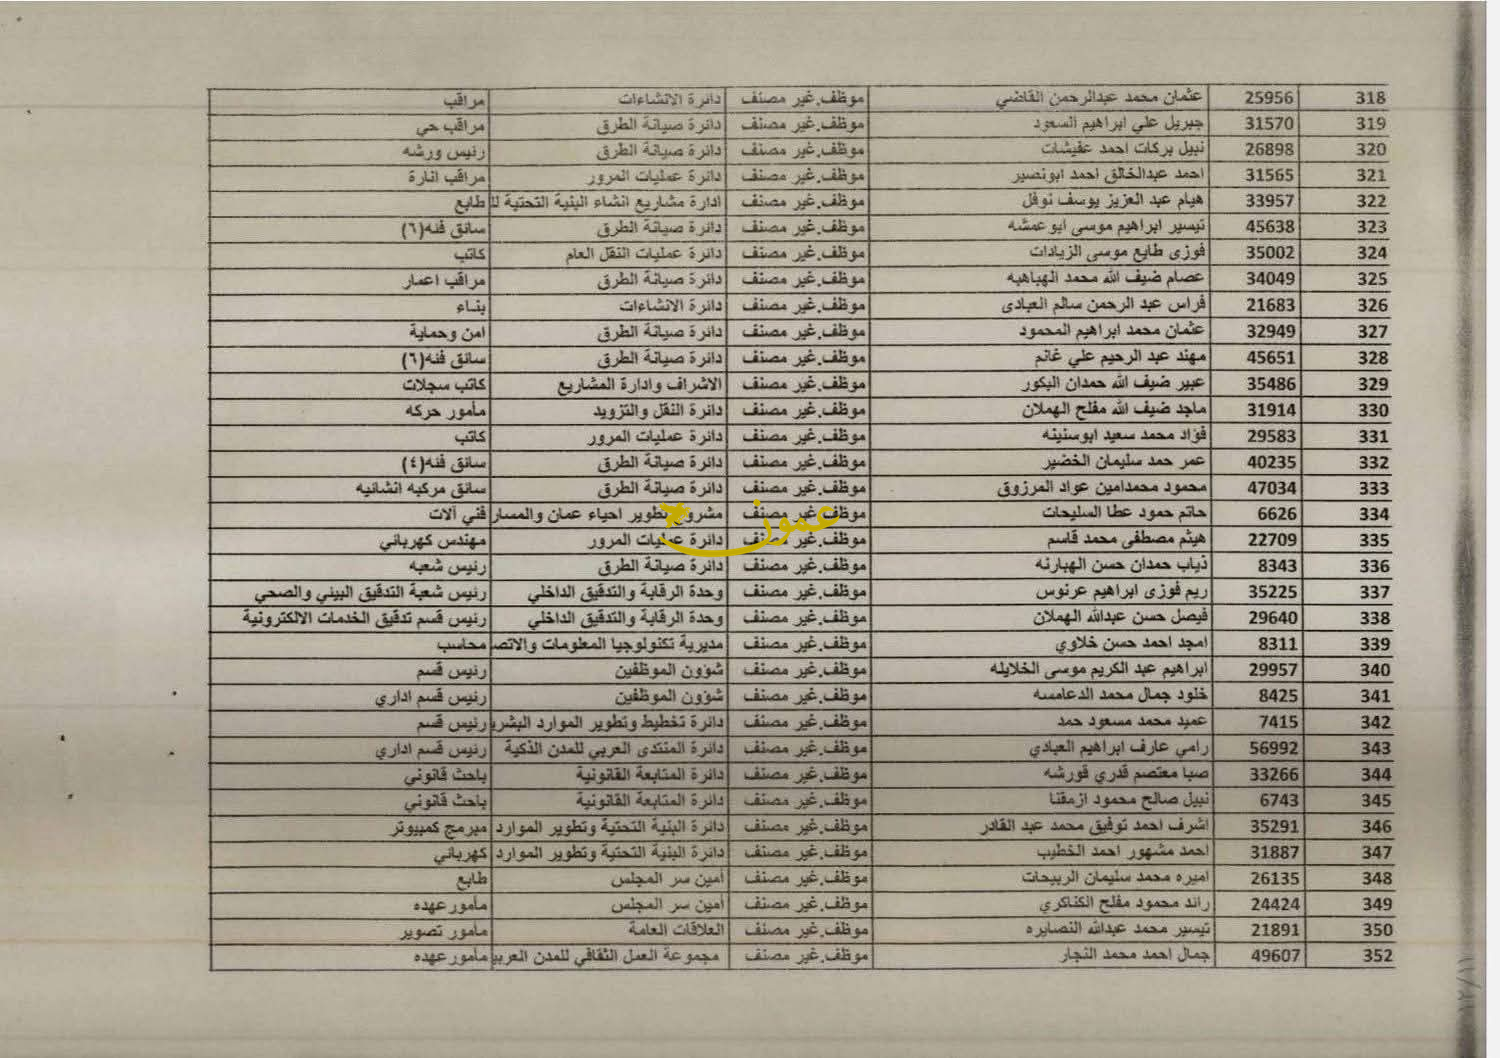 318 25956 عثمان محمد عبدالرحمن القاضي موظف.غير مصنف دائرة الانشاءات مراقب
319 31570 جبريل علي ابراهيم السعود موظف.غير مصنف دائرة صيانة الطرق مراقب حي
320 26898 نبيل بركات احمد عفيشات موظف.غير مصنف دائرة صيانة الطرق رئيس ورشه
321 31565 احمد عبدالخالق احمد ابونصير موظف.غير مصنف دائرة عمليات المرور مراقب انارة
322 33957 هيام عبد العزيز يوسف نوفل موظف.غير مصنف ادارة مشاريع انشاء البنية التحتية لل طابع
323 45638 تيسير ابراهيم موسى ابوعمشه موظف.غير مصنف دائرة صيانة الطرق سائق فئه(٦)
324 35002 فوزي طايع موسى الزيادات موظف.غير مصنف دائرة عمليات النقل العام كاتب
325 34049 عصام ضيف الله محمد الهباهبه موظف.غير مصنف دائرة صيانة الطرق مراقب اعمار
326 21683 فراس عبد الرحمن سالم العبادى موظف.غير مصنف دائرة الانشاءات بناء
327 32949 عثمان محمد ابراهيم المحمود موظف.غير مصنف دائرة صيانة الطرق امن وحماية
328 45651 مهند عبد الرحيم علي غانم موظف.غير مصنف دائرة صيانة الطرق سائق فئه(٦)
329 35486 عبير ضيف الله حمدان البكور موظف.غير مصنف الاشراف وادارة المشاريع كاتب سجلات
330 31914 ماجد ضيف الله مفلح الهملان موظف.غير مصنف دائرة النقل والتزويد مأمور حركه
331 29583 فؤاد محمد سعيد ابوسنينه موظف.غير مصنف دائرة عمليات المرور كاتب
332 40235 عمر حمد سليمان الخضير موظف.غير مصنف دائرة صيانة الطرق سائق فئه(٤)
333 47034 محمود محمدامين عواد المرزوق موظف.غير مصنف دائرة صيانة الطرق سائق مركبه انشائيه
334 6626 حاتم حمود عطا السليحات موظف.غير مصنف مشروع تطوير احياء عمان والمسار فني آلات
عمون
335 22709 هيثم مصطفى محمد قاسم موظف.غير مصنف دائرة عمليات المرور مهندس كهربائي
336 8343 ذياب حمدان حسن الهبارنه موظف.غير مصنف دائرة صيانة الطرق رئيس شعبه
337 35225 ريم فوزى ابراهيم عرنوس موظف.غير مصنف وحدة الرقابة والتدقيق الداخلي رئيس شعبة التدقيق البيئي والصحي
338 29640 فيصل حسن عبدالله الهملان موظف.غير مصنف وحدة الرقابة والتدقيق الداخلي رئيس قسم تدقيق الخدمات الالكترونية
339 8311 امجد احمد حسن خلاوي موظف.غير مصنف مديرية تكنولوجيا المعلومات والاتص محاسب
340 29957 ابراهيم عبد الكريم موسى الخلايله موظف.غير مصنف شؤون الموظفين رئيس قسم
341 8425 خلود جمال محمد الدعامسه موظف.غير مصنف شؤون الموظفين رئيس قسم اداري
342 7415 عميد محمد مسعود حمد موظف.غير مصنف دائرة تخطيط وتطوير الموارد البشري رئيس قسم
343 56992 رامي عارف ابراهيم العبادي موظف.غير مصنف دائرة المنتدى العربي للمدن الذكية رئيس قسم اداري
344 33266 صبا معتصم قدري قورشه موظف.غير مصنف دائرة المتابعة القانونية باحث قانوني
345 6743 نبيل صالح محمود ازمقنا موظف.غير مصنف دائرة المتابعة القانونية باحث قانوني
346 35291 اشرف احمد توفيق محمد عبد القادر موظف.غير مصنف دائرة البنية التحتية وتطوير الموارد مبرمج كمبيوتر
347 31887 احمد مشهور احمد الخطيب موظف.غير مصنف دائرة البنية التحتية وتطوير الموارد كهربائي
348 26135 اميره محمد سليمان الربيحات موظف.غير مصنف أمين سر المجلس طابع
349 24424 رائد محمود مفلح الكناكري موظف.غير مصنف أمين سر المجلس مأمور عهده
350 21891 تيسير محمد عبدالله النصايره موظف.غير مصنف العلاقات العامة مأمور تصوير
352 49607 جمال احمد محمد النجار موظف.غير مصنف مجموعة العمل الثقافي للمدن العربي مأمور عهده